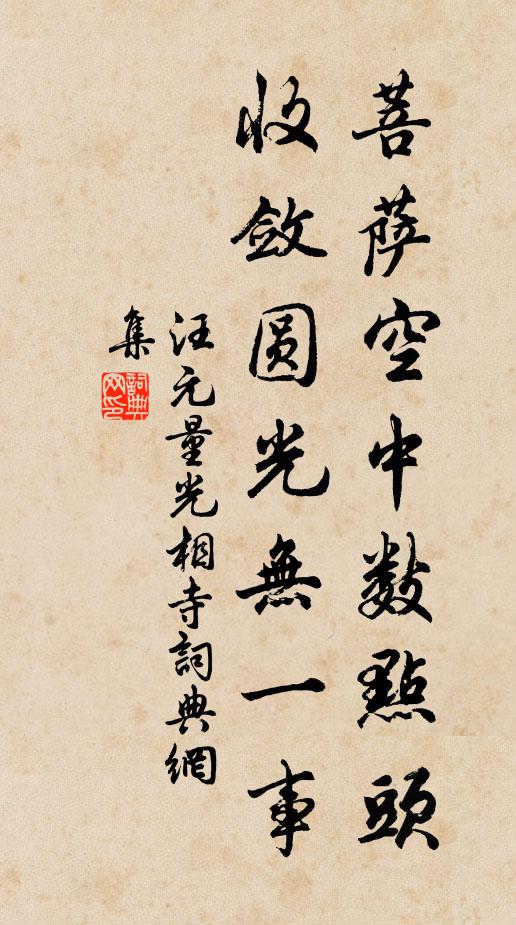 菩薩空中數點頭
收斂圓光無一事
汪元量光相寺詞典網
集
詞典網印